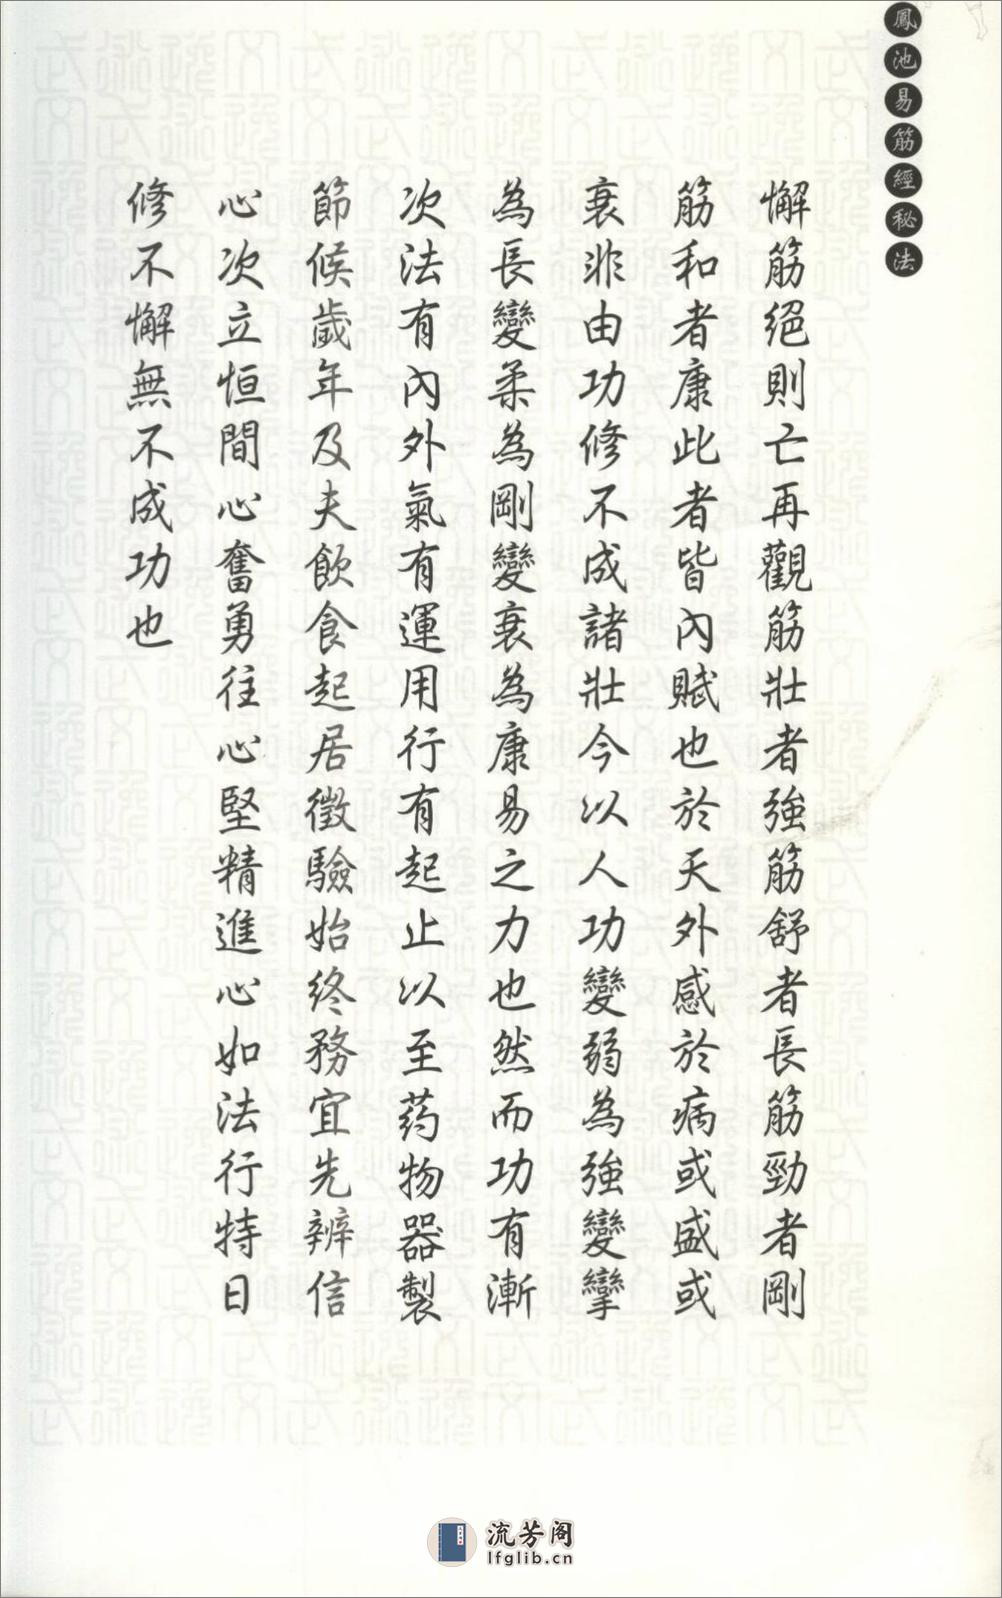 鳳池易筋經秘法
懈筋絕則亡再觀筋壯者強筋舒者長筋勁者剛
筋和者康此者皆內賦也於天外感於病或盛或
衰非由功修不成諸壯今以人功變弱為強變攣
為長變柔為剛變衰為康易之力也然而功有漸
次法有內外氣有運用行有起止以至药物器製
節候歲年及夫飲食起居徵驗始終務宜先辨信
心次立恒間心奮勇往心堅精進心如法行特日
修不懈無不成功也
流芳阁
lfglib.cn